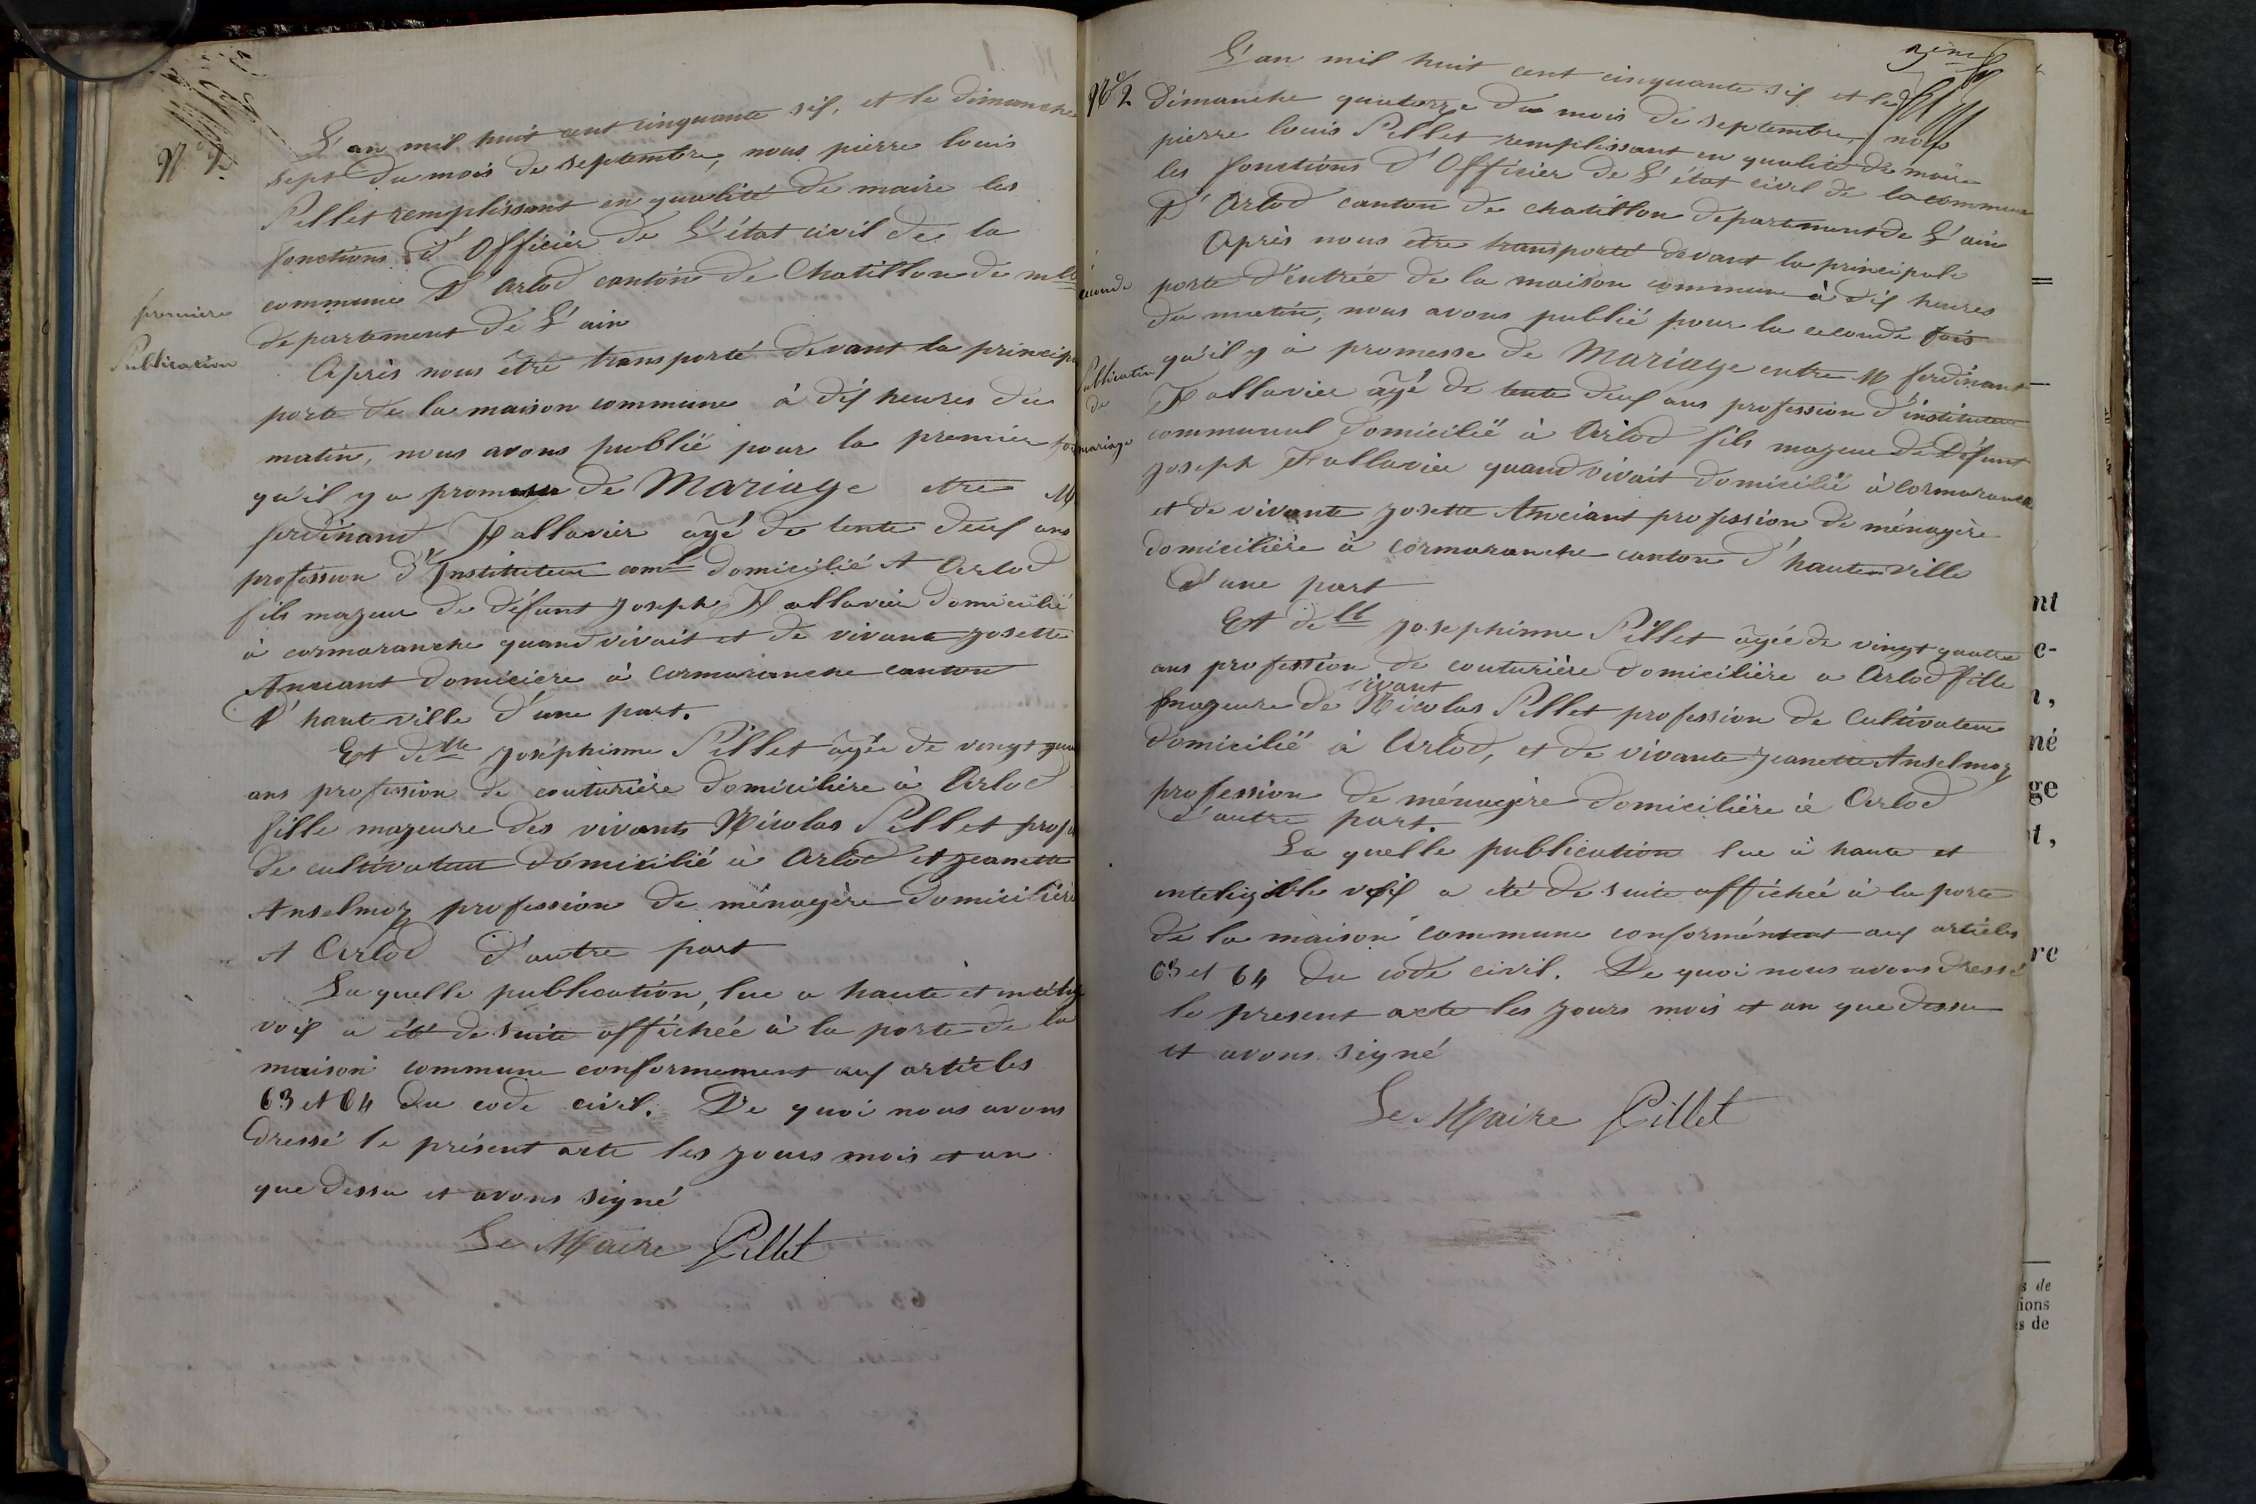 N° 1.
L'an mil huit cent cinquante six, et le dimanche
sept du mois de septembre, nous pierre louis
Pillet remplissant en qualité de maire les
fonctions d'Officier de L'état civil de la
commune D'Arlod canton de Chatillon de mlle
departement de L'ain
première
Publication
Après nous être transporté devant la princip
porte de la maison commune à dix heures du
matin, nous avons publié pour la premier foi
qu'il y a promesse de Mariage etre M
ferdinand Fallavier agé de tente deux ans
profession d'Instituteur comal domicilié A Arlod
fils majeur de défunt Joseph Fallavier domicilié
à cormaranche quand vivait et de vivante Josette
Anciant domiciere à cormaranche canton
D'hauteville d'une part.
Et delle Joséphinne Pillet agée de vingt qua
ans profession de couturière domicilière à Arlod
fille majeure des vivants Nicolas Pillet prof
de cultivateur domicilié à Arlod et Jeanette
Anselmoz profession de ménagère domicilière
A Arlod d'autre part
La quelle publication, lue a haute et intélig
voix a été de suite affichée à la porte de la
maison commune conformement aux artièles
63 et 64 du code civil. De quoi nous avons
dressé le présent acte les jours mois et an
que dessu et avons signé
Le Maire Pillet
N° 2
L'an mil huit cent cinquante six et le
Dimanche quatorze du mois de septembre, nous
pierre louis Pillet remplissant en qualité de maire
les fonctions d'Officier de L'état civil de la commune
D'Arlod canton de chatillon departement de L'ain
Après nous etre transporté devant la principale
porte d'entrée de la maison commune à dix heures
du matin, nous avons publié pour la ceconde fois
ceconde
Publication
de
mariage
qu'il y a promesse de Mariage entre M ferdinant
Fallavier agé de tente deux ans profession d'instituteur
communal domicilié à Arlod fils majeur de Défunt
Joseph Fallavier quand vivait domicilié à cormaranche
et de vivante Josette Anciant profession de ménagère
domicilière à cormaranche canton d'hauteville
d'une part
Et delle Josephinne Pillet agée de vingt quatre
ans profession de couturière domicilière a Arlod fille
majeure de vivant Nicolas Pillet profession de Cultivateur
domicilié à Arlod, et de vivante Jeanette Anselmoz
profession de ménagère domicilière à Arlod
d'autre part.
La quelle publication lue à haute et
inteligible voix a été de suite affichée à la porte
de la maison commune conformément aux artièles
63 et 64 du code civil. De quoi nous avons dressé
le present acte les jours mois et an que dessu
et avons signé
Le Maire Pillet
nt
c-
né
ge
re
s de
ions
s de